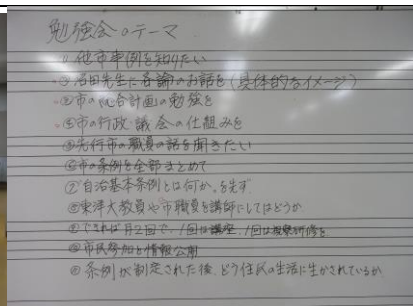 勉強会のテーマ
① 他市事例を知りたい
② 沼田先生に各論のお話を(具体的なイメージ)
③ 市の総合計画の勉強を
④ 市の行政・議会の仕組みを
⑤ 先行市の職員の話を聞きたい
⑥ 市の条例を全部まとめて
⑦ 自治基本条例とは何か、を先ず
⑧ 東洋大教員や市職員を講師にしてはどうか
⑨ できれば月2回で、1回は講座、1回は視察研修を
⑩ 市民参加と情報公開
⑪ 条例が制定された後、どう住民の生活に生かされているか